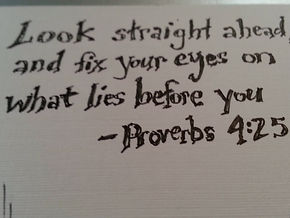 Look straight ahead,
and fix your eyes on
what lies before you
-Proverbs 4:25